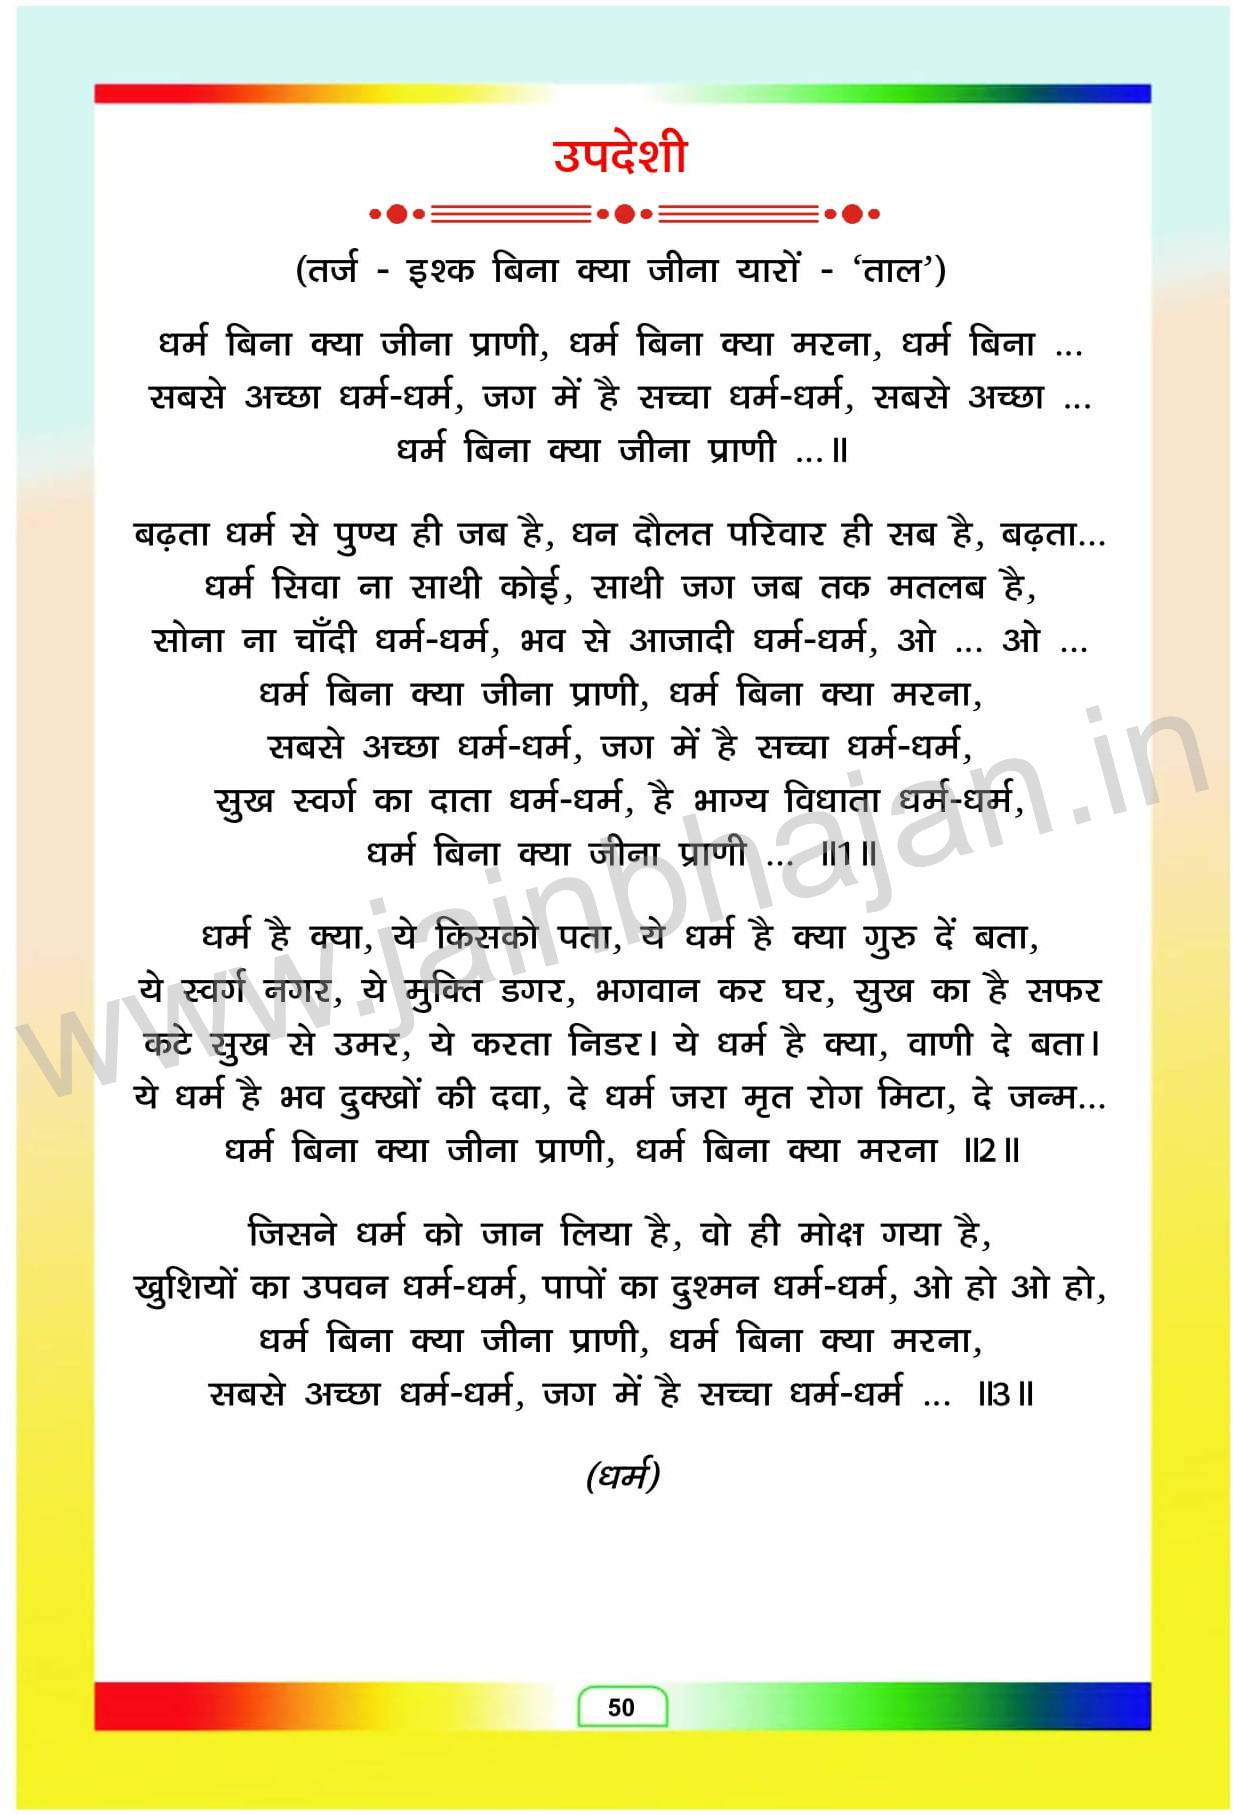 उपदेशी
(तर्ज - इश्क बिना क्या जीना यारों - ‘ताल’)
धर्म बिना क्या जीना प्राणी, धर्म बिना क्या मरना, धर्म बिना ...
सबसे अच्छा धर्म-धर्म, जग में है सच्चा धर्म-धर्म, सबसे अच्छा ...
धर्म बिना क्या जीना प्राणी ...॥
बढ़ता धर्म से पुण्य ही जब है, धन दौलत परिवार ही सब है, बढ़ता...
धर्म सिवा ना साथी कोई, साथी जग जब तक मतलब है,
सोना ना चाँदी धर्म-धर्म, भव से आजादी धर्म-धर्म, ओ ... ओ ...
धर्म बिना क्या जीना प्राणी, धर्म बिना क्या मरना,
सबसे अच्छा धर्म-धर्म, जग में है सच्चा धर्म-धर्म,
सुख स्वर्ग का दाता धर्म-धर्म, है भाग्य विधाता धर्म-धर्म,
धर्म बिना क्या जीना प्राणी ... ॥1॥
धर्म है क्या, ये किसको पता, ये धर्म है क्या गुरु दें बता,
ये स्वर्ग नगर, ये मुक्ति डगर, भगवान कर घर, सुख का है सफर
कटे सुख से उमर, ये करता निडर। ये धर्म है क्या, वाणी दे बता।
ये धर्म है भव दुक्खों की दवा, दे धर्म जरा मृत रोग मिटा, दे जन्म...
धर्म बिना क्या जीना प्राणी, धर्म बिना क्या मरना ॥2॥
जिसने धर्म को जान लिया है, वो ही मोक्ष गया है,
खुशियों का उपवन धर्म-धर्म, पापों का दुश्मन धर्म-धर्म, ओ हो ओ हो,
धर्म बिना क्या जीना प्राणी, धर्म बिना क्या मरना,
सबसे अच्छा धर्म-धर्म, जग में है सच्चा धर्म-धर्म ... ॥3॥
(धर्म)
50
www.jainbhajan.in